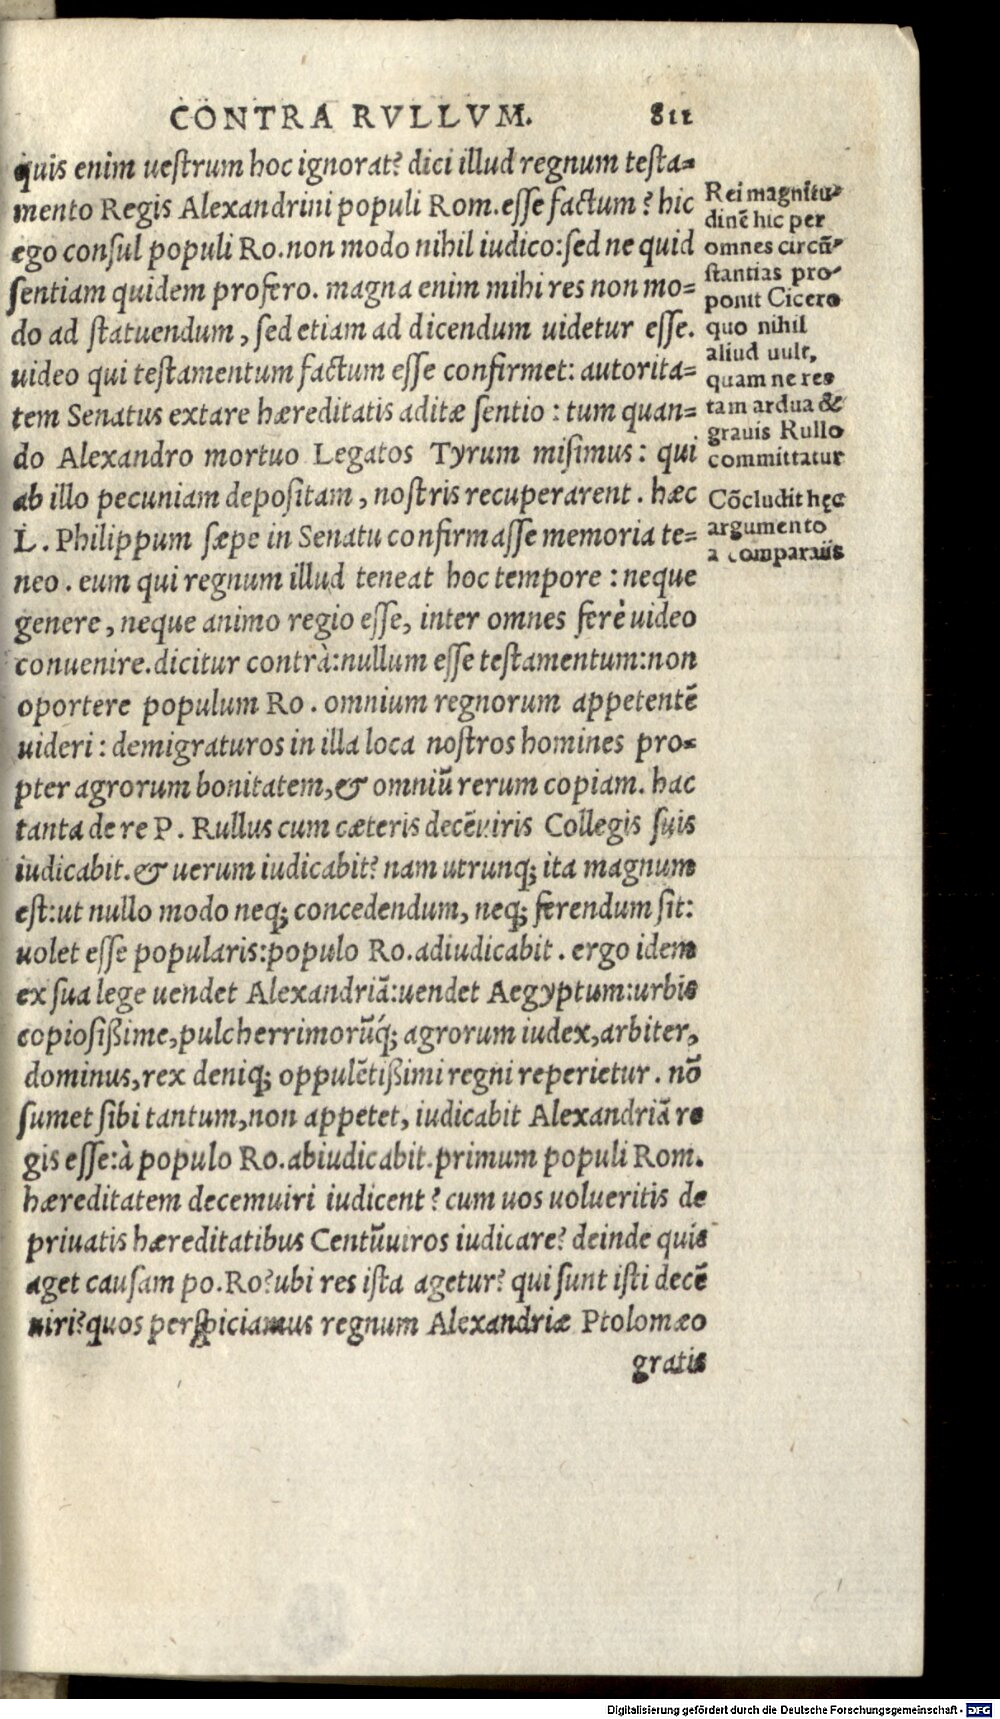 CONTRA RVLLVM. 811
quis enim uestrum hoc ignorat? dici illud regnum testa=
mento Regis Alexandrini populi Rom. esse factum? hic
ego consul populi Ro. non modo nihil iudico: sed ne quid
sentiam quidem profero. magna enim mihi res non mo=
do ad statuendum, sed etiam ad dicendum uidetur esse.
uideo qui testamentum factum esse confirmet: autorita=
tem Senatus extare hæreditatis aditæ sentio: tum quan=
do Alexandro mortuo Legatos Tyrum misimus: qui
ab illo pecuniam depositam, nostris recuperarent. hæc
L. Philippum sæpe in Senatu confirmasse memoria te=
neo. eum qui regnum illud teneat hoc tempore: neque
genere, neque animo regio esse, inter omnes ferè uideo
conuenire. dicitur contrà: nullum esse testamentum: non
oportere populum Ro. omnium regnorum appetentē
uideri: demigraturos in illa loca nostros homines pro=
pter agrorum bonitatem, & omniū rerum copiam. hac
tanta de re P. Rullus cum cæteris decēuiris Collegis suis
iudicabit. & uerum iudicabit? nam utrunq; ita magnum
est: ut nullo modo neq; concedendum, neq; ferendum sit:
uolet esse popularis: populo Ro. adiudicabit. ergo idem
ex sua lege uendet Alexandriā: uendet Aegyptum: urbis
copiosißime, pulcherrimorūq́; agrorum iudex, arbiter,
dominus, rex deniq; oppulētißimi regni reperietur. nō
sumet sibi tantum, non appetet, iudicabit Alexandriā re
gis esse: à populo Ro. abiudicabit. primum populi Rom.
hæreditatem decemuiri iudicent? cum uos uolueritis de
priuatis hæreditatibus Centūuiros iudicare? deinde quis
aget causam po. Ro? ubi res ista agetur? qui sunt isti decē
uiri? quos perspiciamus regnum Alexandriæ Ptolomæo
gratis
Rei magnitu-
dinē hic per
omnes circū-
stantias pro-
ponit Cicero
quo nihil
aliud uult,
quam ne res
tam ardua &
grauis Rullo
committatur
Cōcludit hęc
argumento
a comparatis
Digitalisierung gefördert durch die Deutsche Forschungsgemeinschaft - DFG